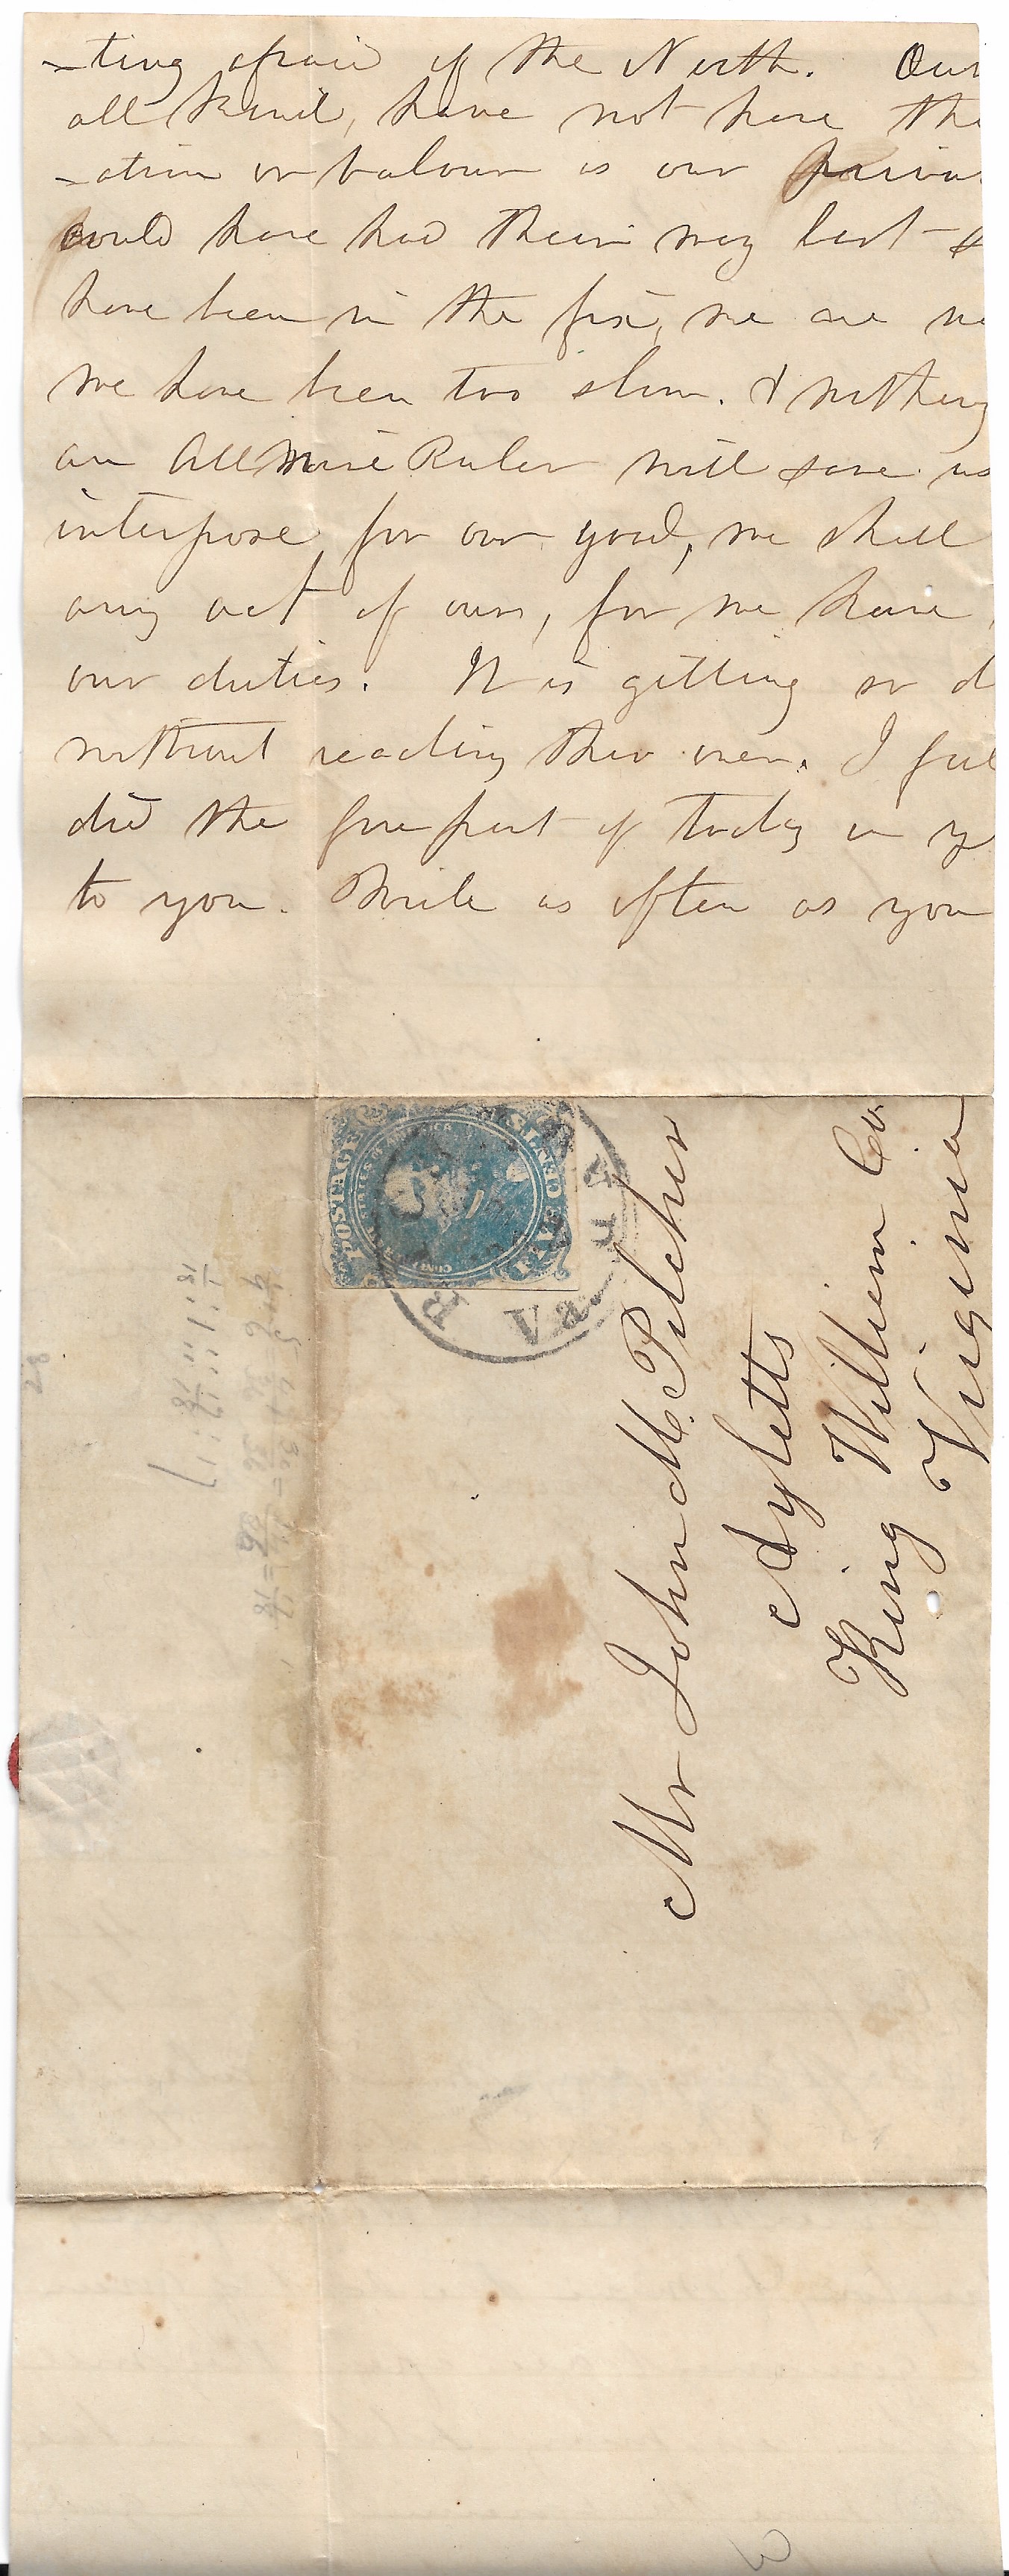 -ting afraid of the North. Our
all kind, have not have the
-ation or valour is our
could have had their way last
have been in the fix, we are
we have been too slow. & nothing
an Allwise Ruler will save us
interpose, for our good, we shall
any act of ours, for we have
our duties. It is getting so d
without reading this over. I feel
did the forepart of today in y
to you. Write as often as you
POSTAGE
FIVE CENTS
Va.
Mr John M. Pilcher
Ayletts
King William Co.
Virginia